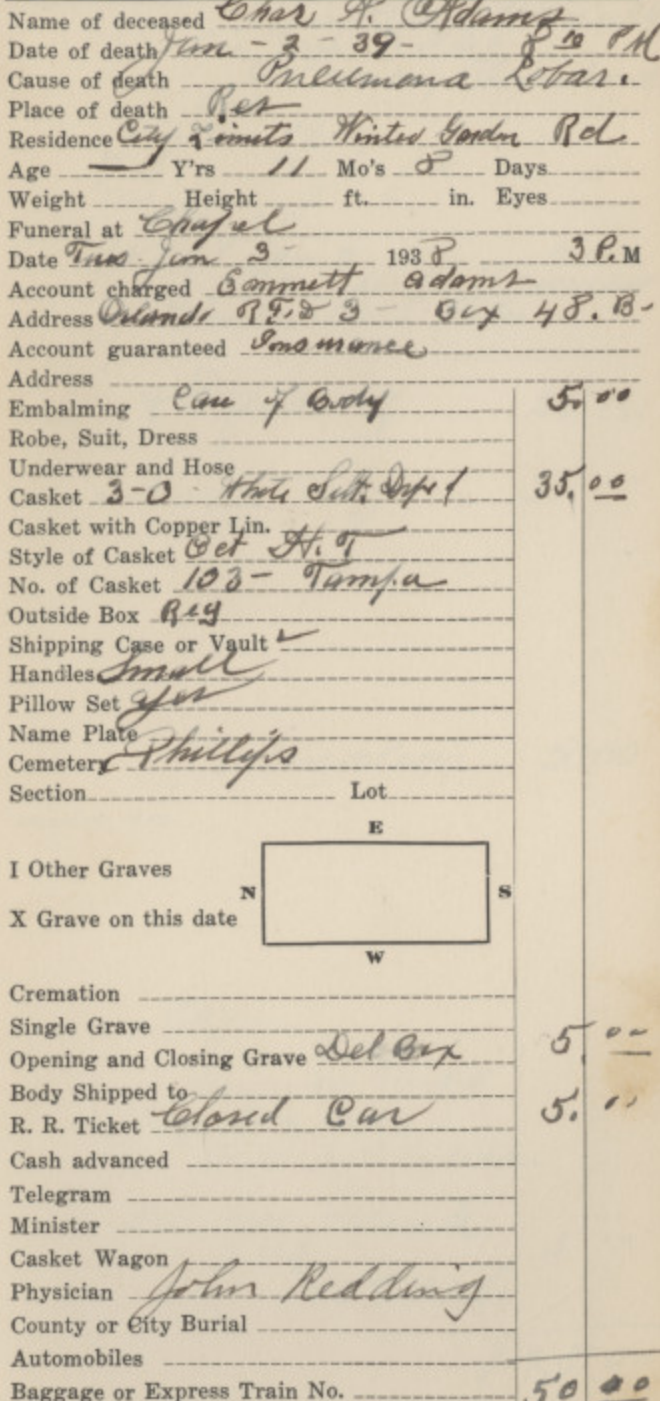 Name of deceased Char R. Adams
Date of death Jan - 2 - 39 - 8 10 PM
Cause of death Pneumona Lobar.
Place of death Res
Residence City Limits Winter Garden Rd
Age — Y'rs 11 Mo's 8 Days
Weight Height ft. in. Eyes
Funeral at Chapel
Date Tues Jan 3 1938 3 P.M
Account charged Emmett Adams
Address Orlando R.F.D 3 - Box 48. B-
Account guaranteed Insurance
Address
Embalming Care of Body 5.00
Robe, Suit, Dress
Underwear and Hose
Casket 3-0 White 35.00
Casket with Copper Lin.
Style of Casket Oct H.T
No. of Casket 103 - Tampa
Outside Box Reg
Shipping Case or Vault
Handles Small
Pillow Set yes
Name Plate
Cemetery Phillips
Section Lot
E
I Other Graves
N S
X Grave on this date
W
Cremation
Single Grave
Opening and Closing Grave Del Box 5.00
Body Shipped to
R. R. Ticket Closed Car 5.00
Cash advanced
Telegram
Minister
Casket Wagon
Physician John Redding
County or City Burial
Automobiles
Baggage or Express Train No. 50 00